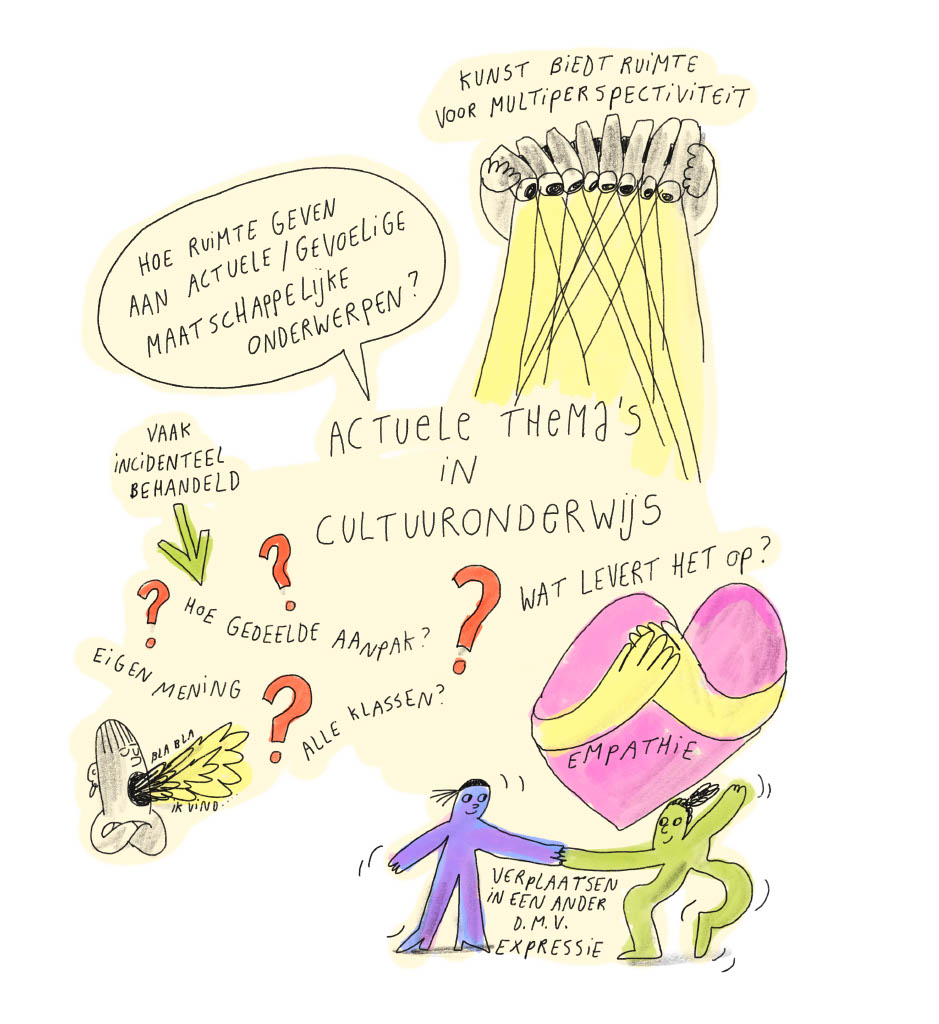 KUNST BIEDT RUIMTE
VOOR MULTIPERSPECTIVITEIT
HOE RUIMTE GEVEN
AAN ACTUELE/GEVOELIGE
MAATSCHAPPELIJKE
ONDERWERPEN?
ACTUELE THEMA'S
IN
CULTUURONDERWIJS
VAAK
INCIDENTEEL
BEHANDELD
?
?
?
?
HOE GEDEELDE AANPAK?
EIGEN MENING
ALLE KLASSEN?
BLA BLA
IK VIND...
WAT LEVERT HET OP?
EMPATHIE
VERPLAATSEN
IN EEN ANDER
D.M.V.
EXPRESSIE